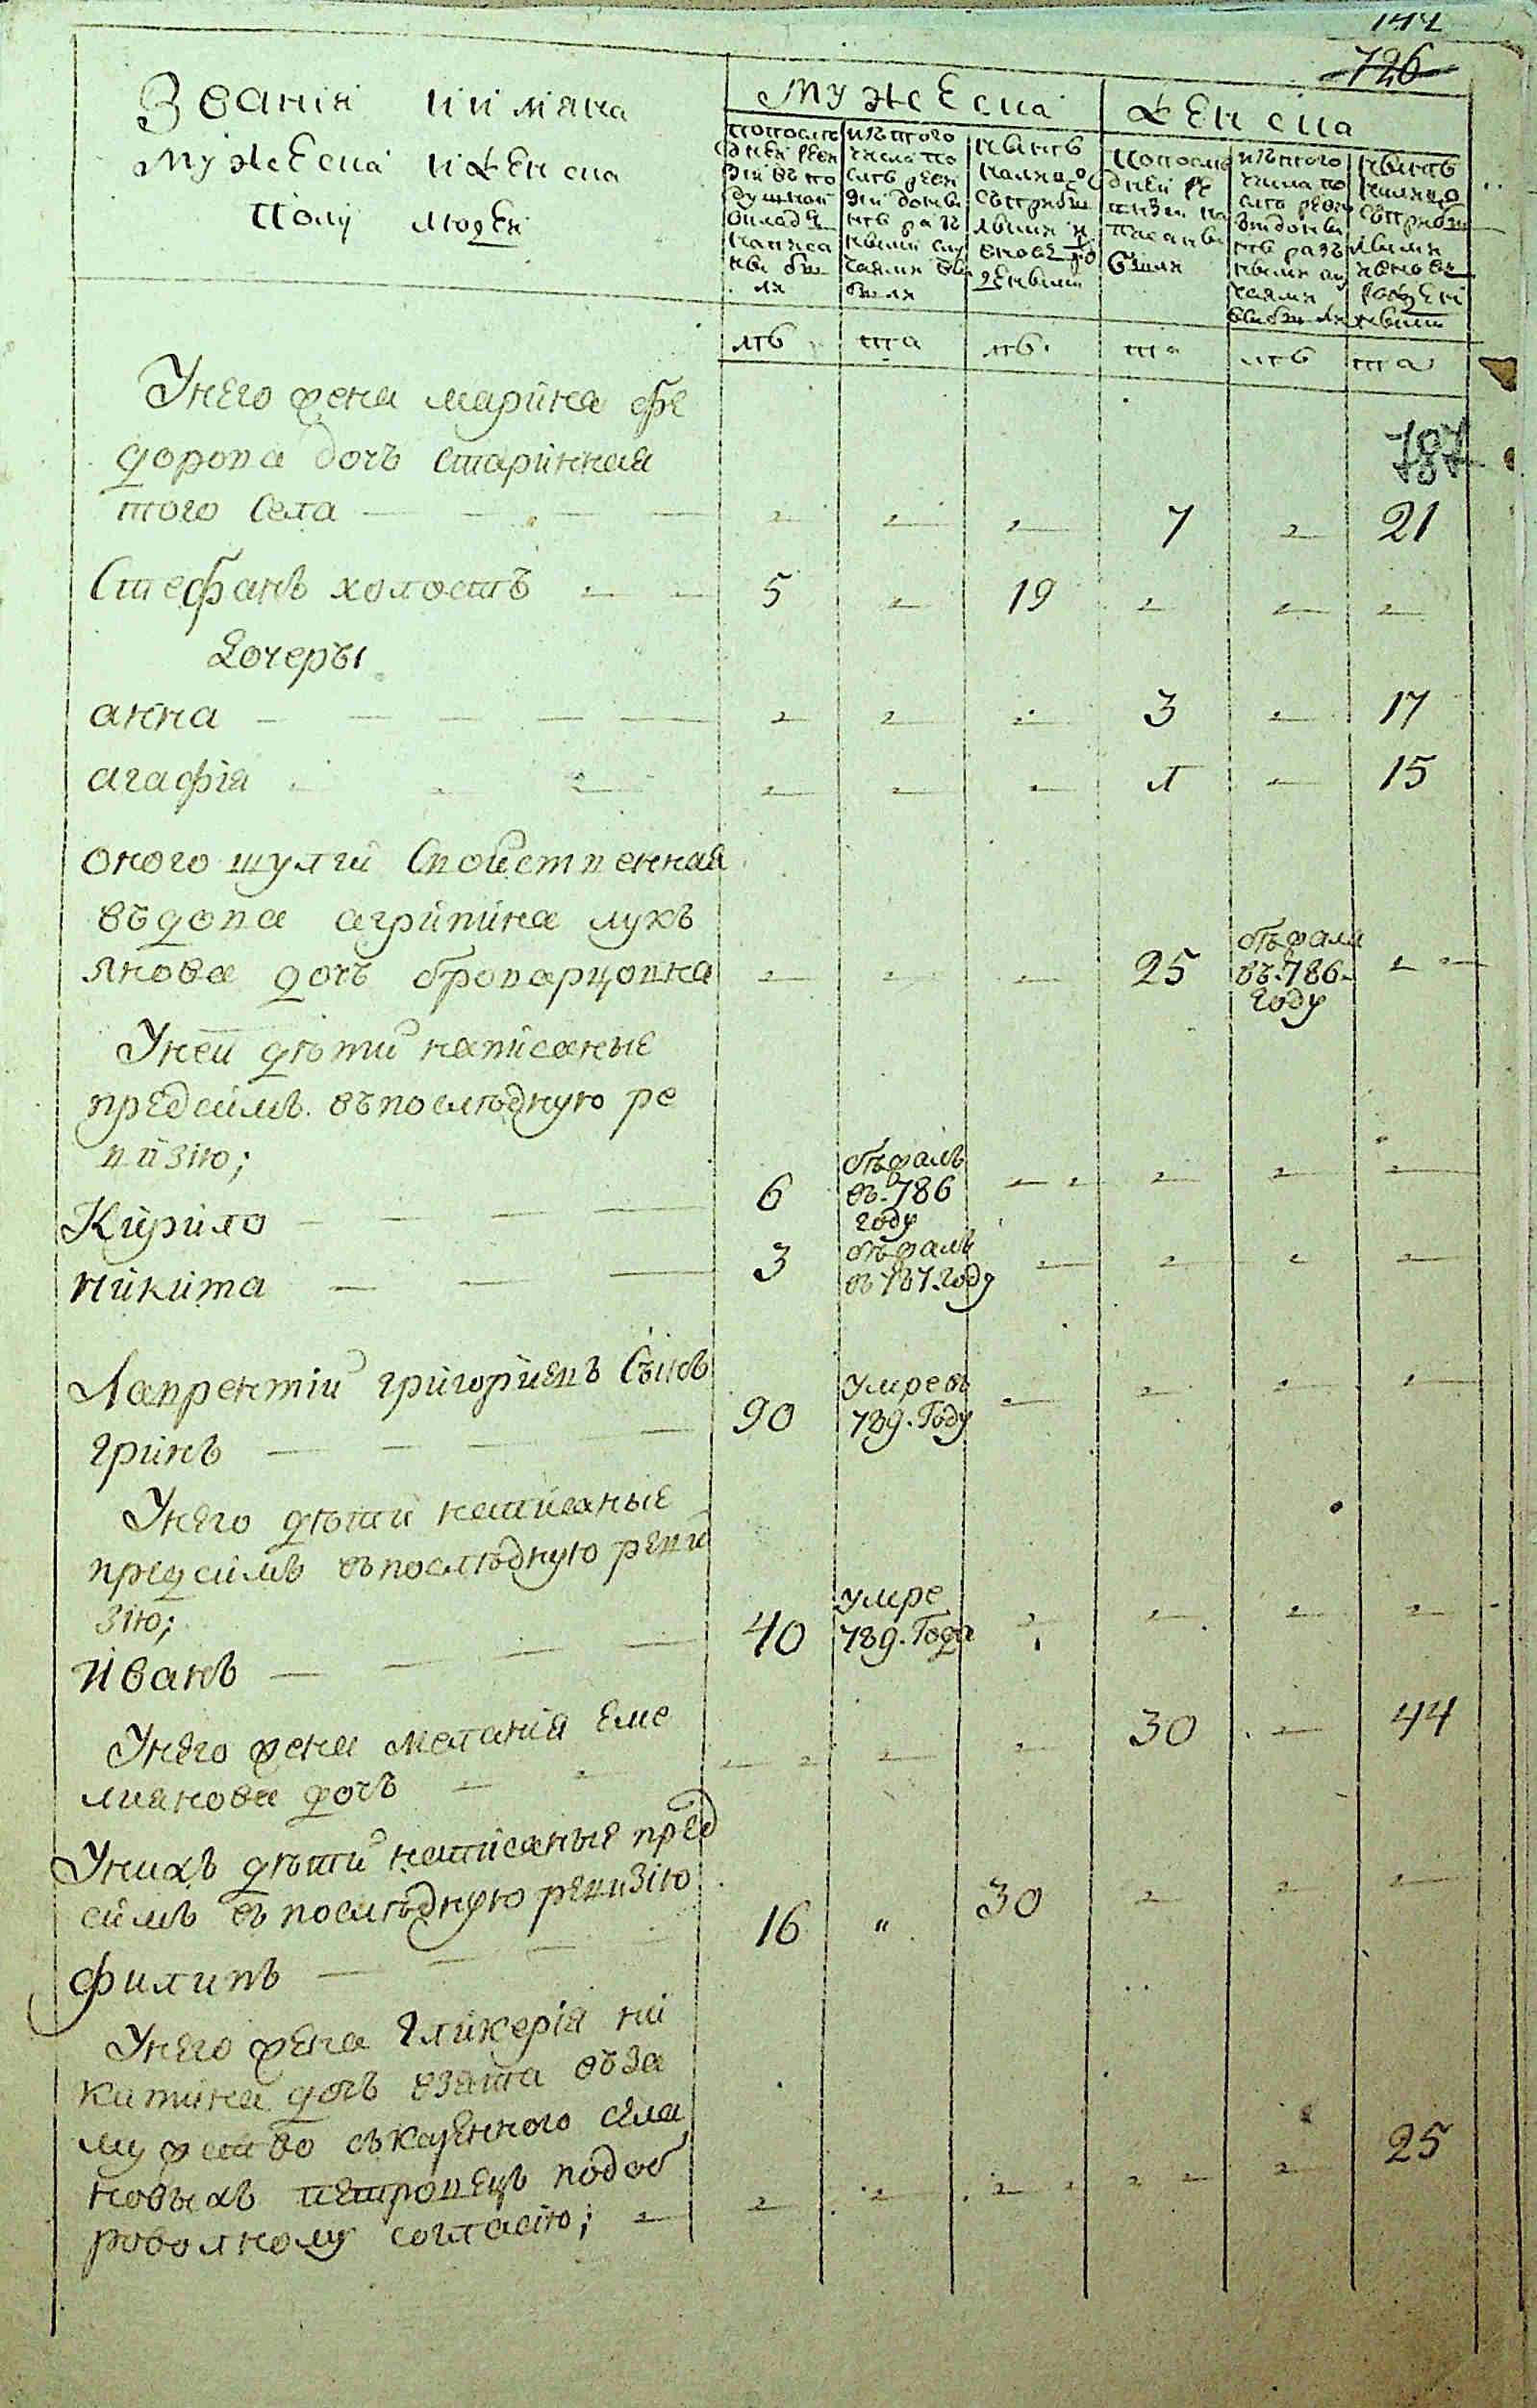 144
726
Званія и имяна
мужеска и женска
полу людей
Мужеска
Женска
попослѣ
дней реви
зіи въ по
душной
окладъ
написа
ны бы
ли
изътого
числа по
слѣ реви
зіи доны
нѣ разъ
ными слу
чаями вы
были
нынѣ
налицо
съприбы
лыми и
вновь ро
жденными
попослѣ
дней ре
визіи на
писаны
были
изътого
числа по
слѣ реви
зіи доны
нѣ разъ
ными слу
чаями
выбыли
нынѣ
налицо
съприбы
лыми
ивновь
рожден
ными
лѣ та лѣ та лѣ та
Унего жена марина фе
дорова дочь старинная
того села 7 21
787
Стефанъ холостъ 5 19
Дочеры
анна 3 17
агафія 1 15
оного шулги свойственная
въдова агрипина лукъ
янова дочь броварцовна 25 объжала въ 786 году
Уней дѣти написаные
предсимъ въпослѣдную ре
визію;
Кирило 6 объжалъ въ 786 году
никита 3 объжалъ въ 787 году
Лаврентій григориевъ Сынъ
гринь 90 умре въ 789. Году
Унего дѣти написаные
предсимъ въпослѣдную реви
зію;
иванъ 40 умре 789. Года
Унего жена меланія еме
лиянова дочь 30 44
Унихъ дѣти написаные пред
симъ въпослѣдную ревизію
филипъ 16 " 30
Унего жена гликерія ни
китина дочь взята въза
мужство съказенного села
новыхъ петровецъ подоб
роволному согласію; 25